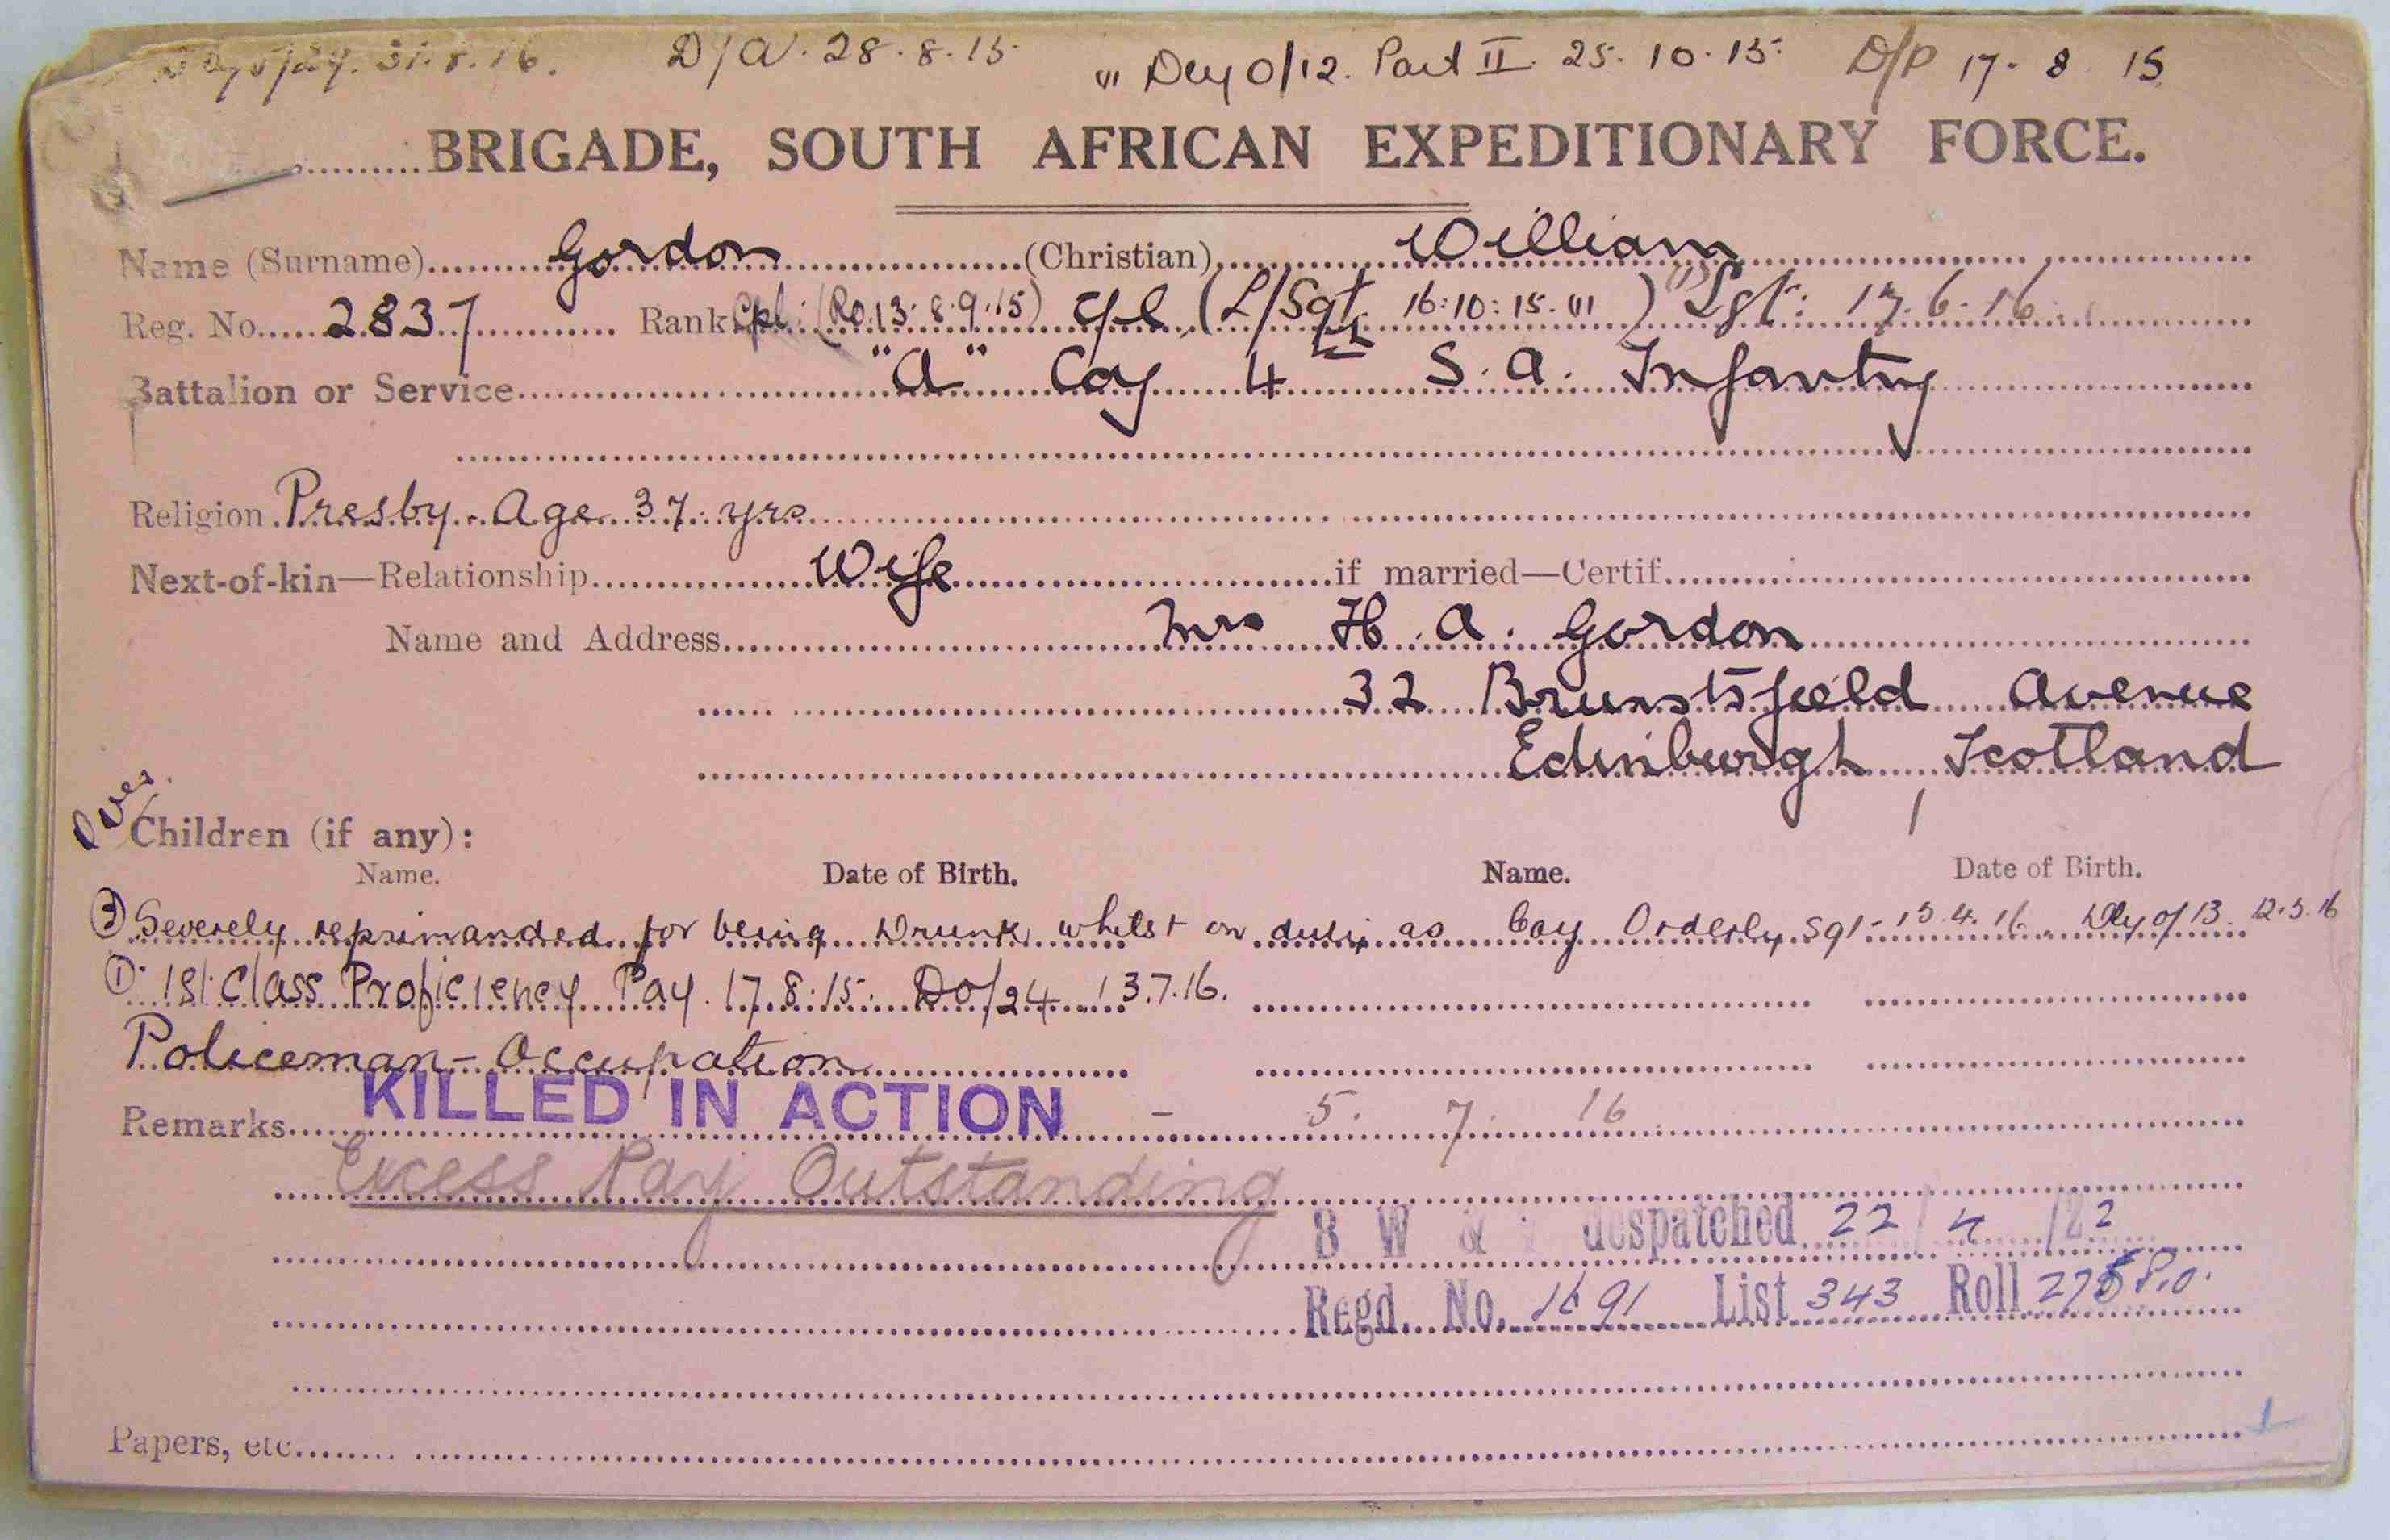 31.8.16. D/A. 28.8.15 "' Dly O/12. Part II. 25.10.15. D/P 17.8.15
BRIGADE, SOUTH AFRICAN EXPEDITIONARY FORCE.
Name (Surname) Gordon (Christian) William
Reg. No. 2837 Rank Cpl. (Ro.13. 8.9.15) Cpl (L/Sgt 16:10:15. "') Sgt: 17.6.16
Battalion or Service "A" Coy 4th S.A. Infantry
Religion Presby. Age 37 yrs
Next-of-kin—Relationship Wife if married—Certif.
Name and Address Mrs H.A. Gordon
32 Bruntsfield Avenue
Edinburgh, Scotland
Over
Children (if any):
Name. Date of Birth. Name. Date of Birth.
Severely reprimanded for being Drunk whilst on duty as Coy Orderly Sgt - 15.4.16. Dly O/13. 12.5.16
① 1st Class Proficiency Pay. 17.8.15. DO/24 13.7.16.
Policeman - Occupation
Remarks KILLED IN ACTION - 5. 7. 16
Excess Pay Outstanding
B W & despatched 22/4/22
Regd. No. 1691 List 343 Roll 275 P.O.
Papers, etc. 1